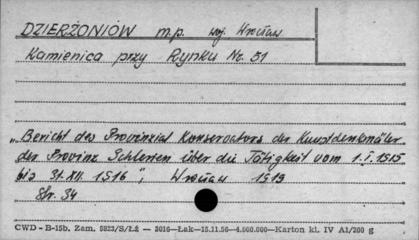 DZIERŻONIÓW m.p. woj. Wrocław
Kamienica przy Rynku Nr. 51
„Bericht des Provinzial Konservators der Kunstdenkmäler
der Provinz Schlesien über die Tätigkeit vom 1.I.1915
bis 31.XII.1916”, Wrocław 1919
Str. 34
CWD - B-15b. Zam. 5823/S/Łż — 3016—Łak—15.11.56—4.000.000—Karton kl. IV A1/200 g